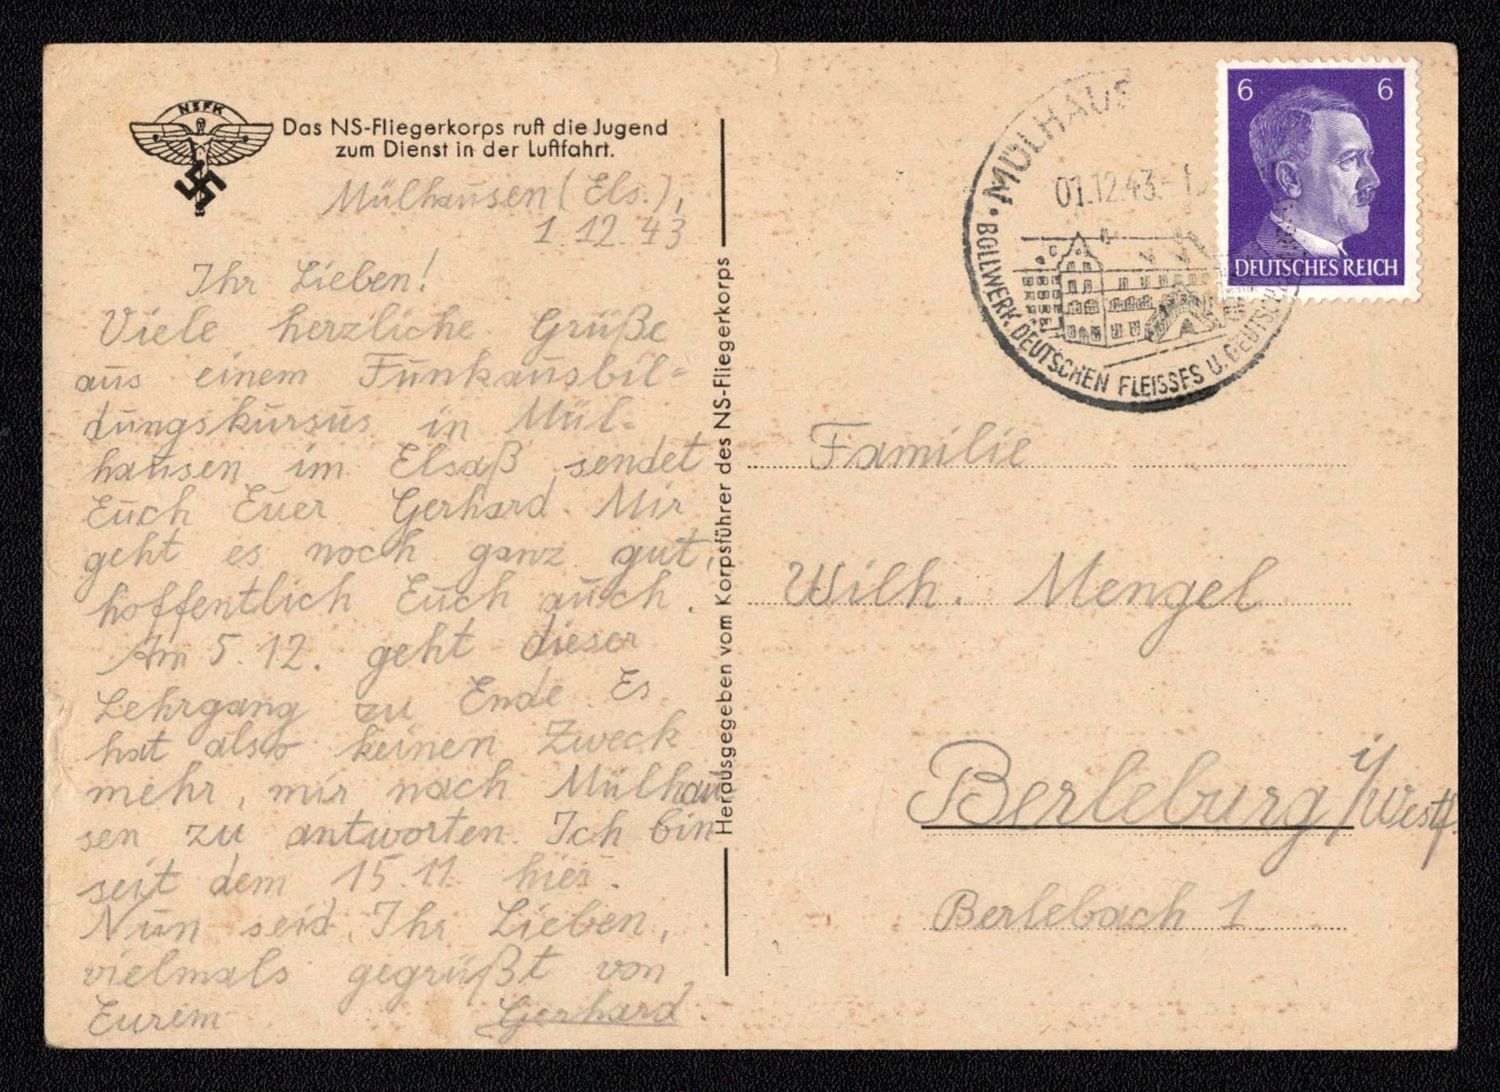 NSFK
Das NS-Fliegerkorps ruft die Jugend
zum Dienst in der Luftfahrt.
Mülhausen (Els.),
1.12.43
Ihr Lieben!
Viele herzliche Grüße
aus einem Funkausbil-
dungskursus in Mül-
hausen im Elsaß, sendet
Euch Euer Gerhard. Mir
geht es noch ganz gut,
hoffentlich Euch auch.
Am 5.12. geht dieser
Lehrgang zu Ende. Es
hat also keinen Zweck
mehr, mir nach Mülhau
sen zu antworten. Ich bin
seit dem 15.11. hier.
Nun seid, Ihr Lieben,
vielmals gegrüßt von
Eurem Gerhard.
Herausgegeben vom Korpsführer des NS-Fliegerkorps
MÜLHAUS
01.12.43.-1
• BOLLWERK DEUTSCHEN FLEISSES U. DEUTSCH
6 6
DEUTSCHES REICH
Familie
Wilh. Mengel
Berleburg i/Westf.
Berlebach 1.